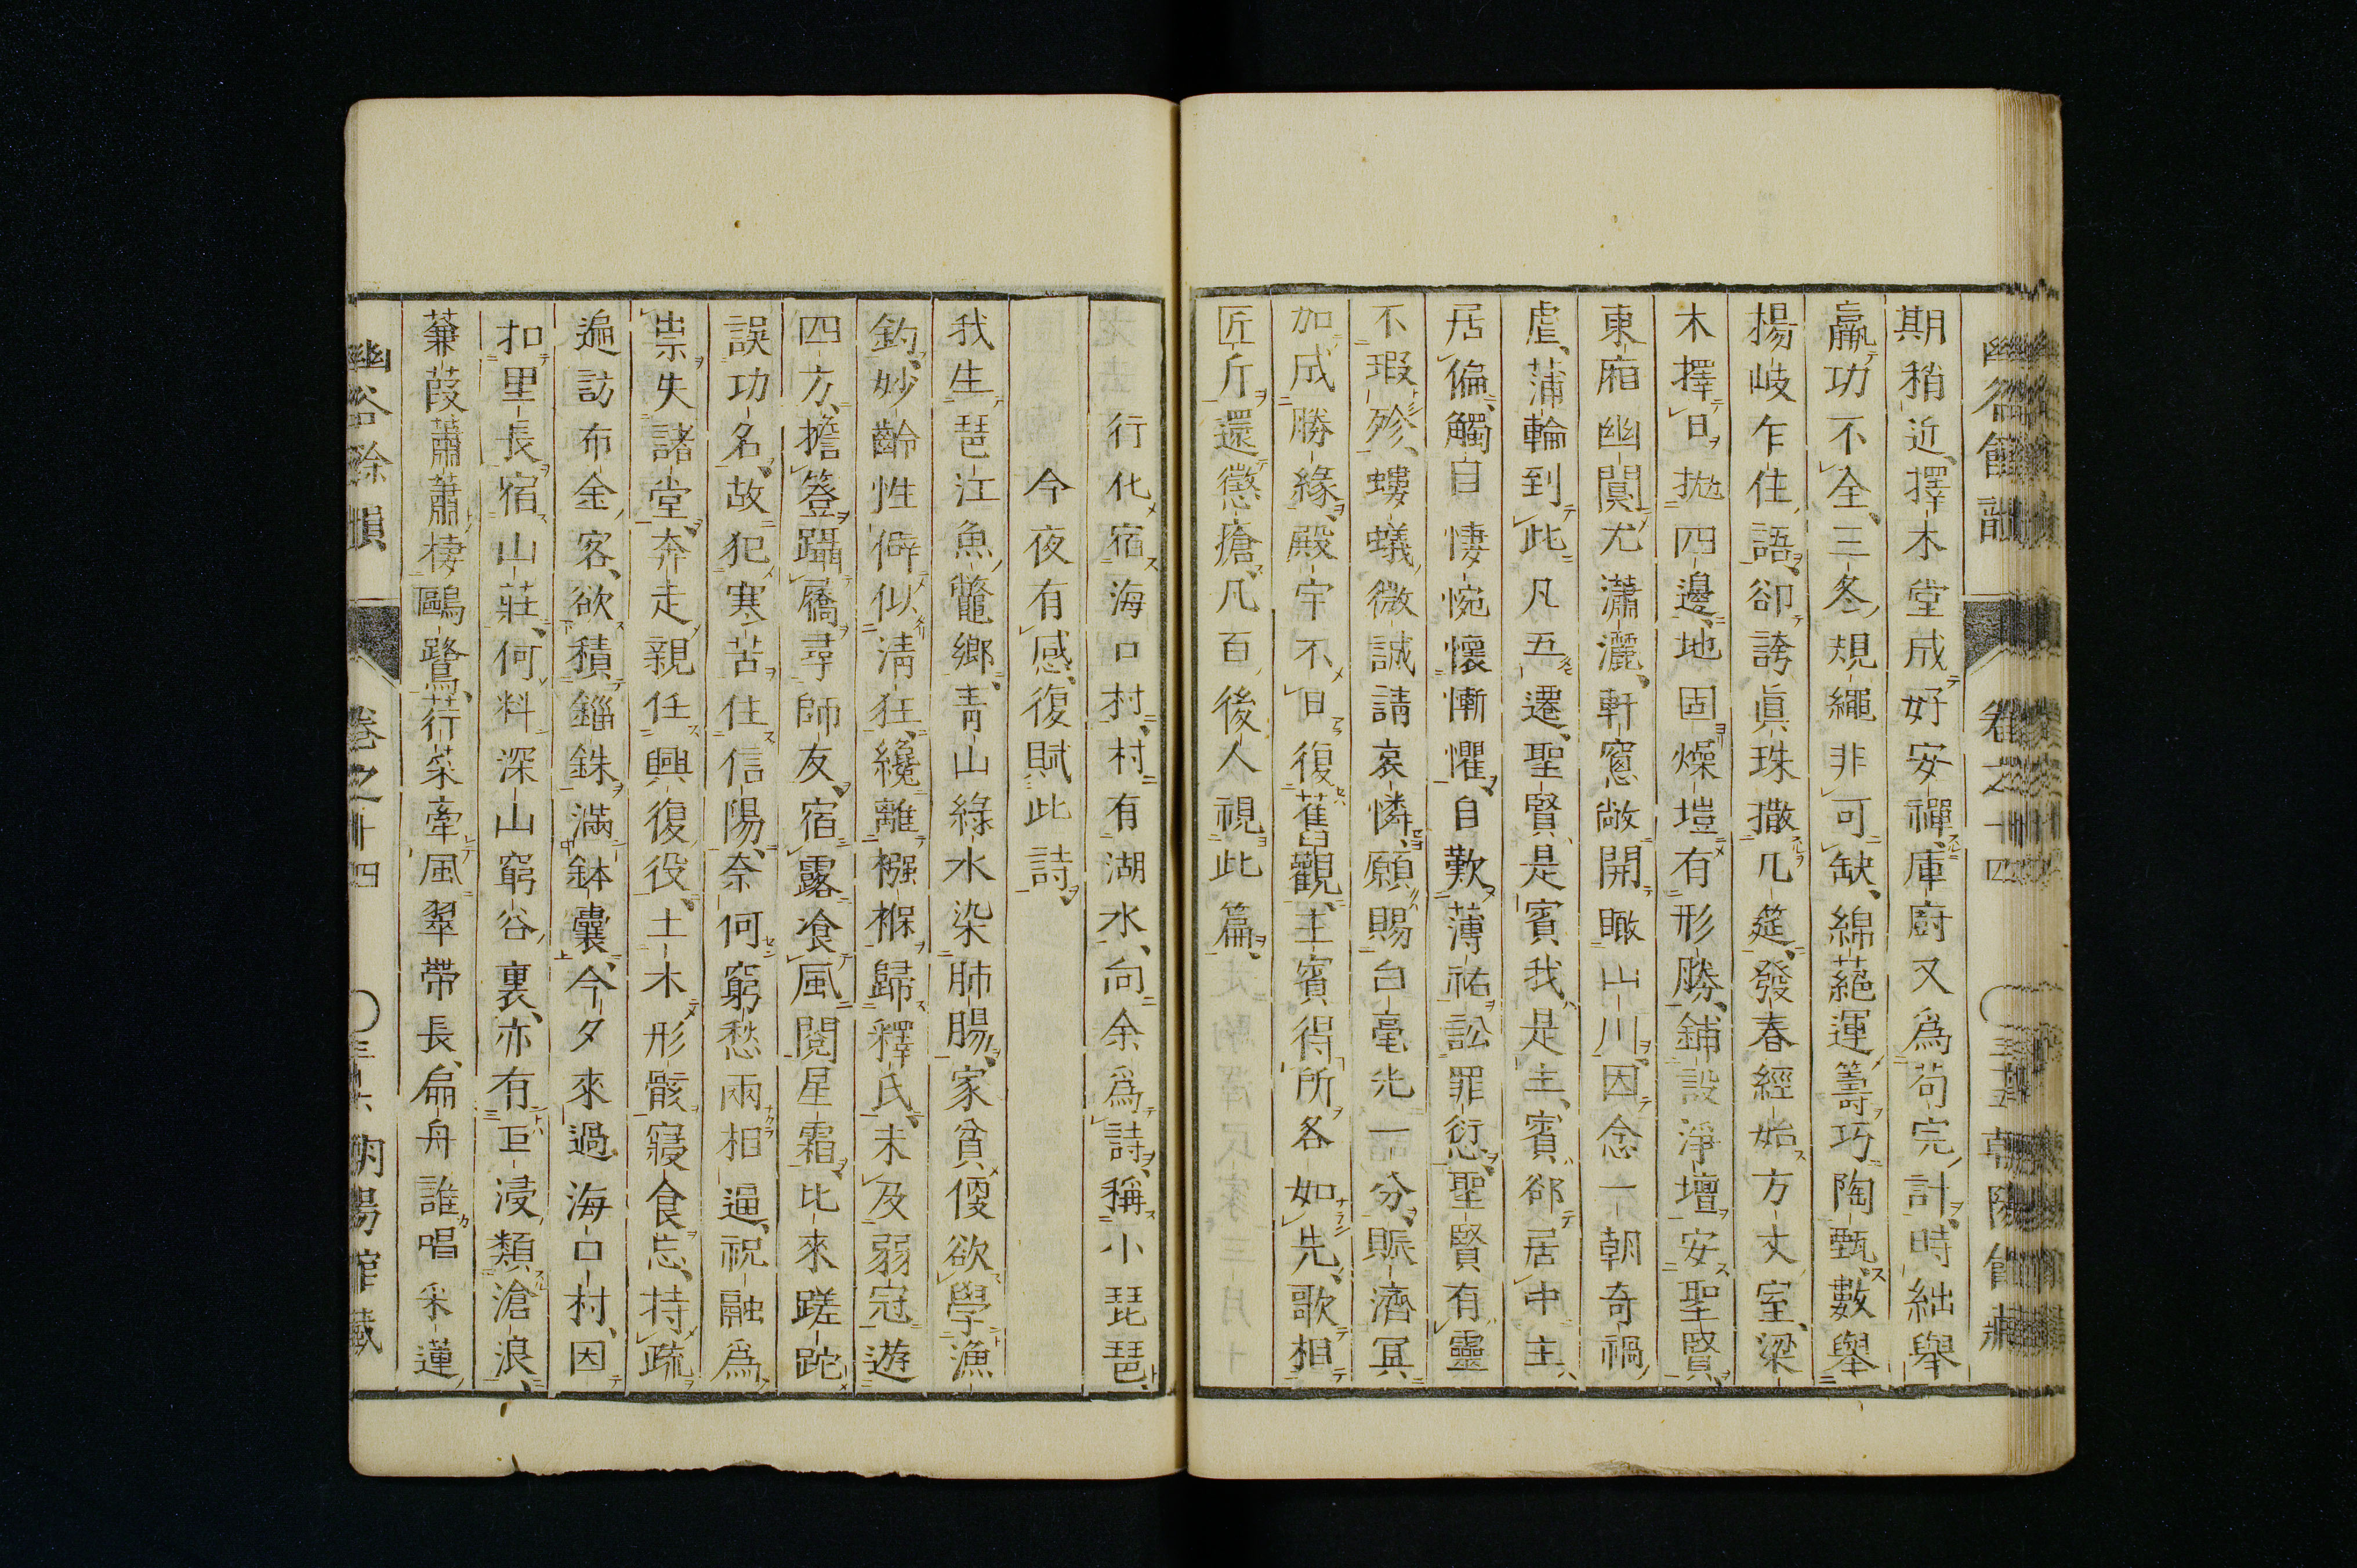 期稍近、擇木堂成好安禪、庫廚又爲苟完計、時絀舉
羸功不全、三冬規繩非可缺、綿蕝運籌巧陶甄、數舉
楊岐乍住語、卻誇眞珠撒几筵、發春經始方丈室、梁
木擇日拋四邊、地固燥塏有形勝、鋪設淨壇安聖賢、
東廂幽闃尤瀟灑、軒窻敞開瞰山川、因念一朝奇禍
虐、蒲輪到此凡五遷、聖賢是賓我是主、賓郤居中主
居偏、觸目悽惋懷慚懼、自歎薄祐訟罪愆、聖賢有靈
不瑕殄、螻蟻微誠請哀憐、願賜白毫光一分、賑濟冥
加成勝緣、殿宇不日復舊觀、主賓得所各如先、歌相
匠斤還懲瘡、凡百後人視此篇、
行化宿海口村、村有湖水、向余爲詩、稱小琵琶、
今夜有感、復賦此詩、
我生琶江魚鼈鄉、靑山綠水染肺腸、家貧便欲學漁
釣、妙齡性僻似淸狂、纔離襁褓歸釋氏、未及弱冠遊
四方、擔簦躡屩尋師友、宿露飡風閱星霜、比來蹉跎
誤功名、故犯寒苦住信陽、奈何窮愁兩相逼、祝融爲
祟失諸堂、奔走親任興復役、土木形骸寢食忘、持疏
遍訪布金客、欲積錙銖滿鉢囊、今夕來過海口村、因
扣里長宿山莊、何料深山窮谷裏、亦有巨浸類滄浪、
蒹葭蕭蕭棲鷗鷺、荇菜牽風翠帶長、扁舟誰唱采蓮
幽谷餘韻 卷之十四 〇三十六 朝陽館藏